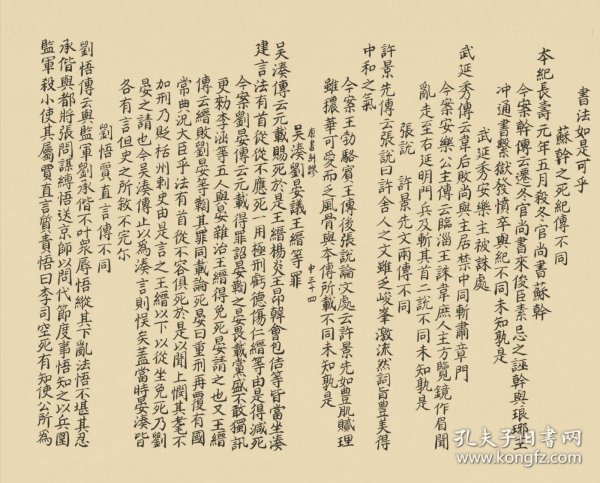 書法如是可乎
蘇幹之死紀傳不同
本紀長壽元年五月殺冬官尚書蘇幹
今案幹傳云遷冬官尚書來俊臣素忌之誣幹與琅琊王
冲通書繫獄發憤卒與紀不同未知孰是
武延秀安樂主被誅處
武延秀傳云韋后敗尚與主居禁中同斬肅章門
今案安樂公主傳云臨淄王誅韋庶人主方覽鏡作眉聞
亂走至右延明門兵及斬其首二說不同未知孰是
張說 許景先文兩傳不同
許景先傳云張說曰許舍人之文雖乏峻峯激流然詞旨豊美得
中和之氣
今案王勃駱賓王傳後張說論文處云許景先如豊肌膩理
雖穠華可愛而乏風骨與本傳所載不同未知孰是
唐書糾謬 中三十四
吴湊劉晏議王縉等罪
吴湊傳云元載賜死於是王縉楊炎王昂韓會包佶等皆當坐湊
建言法有首從從不應死一用極刑虧德傷仁縉等由是得減死
今案劉晏傳云元載得罪詔晏鞫之晏畏載黨盛不敢獨訊
更勑李涵等五人與晏雜治王縉得免死晏請之也又王縉
傳云縉敗劉晏等鞫其罪同載論死晏曰重刑再覆有國
常典況大臣乎法有首從不容俱死於是以聞上憫其耄不
加刑乃貶栝州刺史由是言之王縉以下以從坐免死乃劉
晏之請也今吴湊傳止以為湊言則悞矣盖當時晏湊皆
各有言但史之所敘不完尒
劉悟賈直言傳不同
劉悟傳云與監軍劉承偕不叶衆辱悟縱其下亂法悟不堪其忍
承偕與都將張問謀縛悟送京師以問代節度事悟知之以兵圍
監軍殺小使其屬賈直言質責悟曰李司空死有知使公所為
孔夫子旧书网
www.kongfz.com